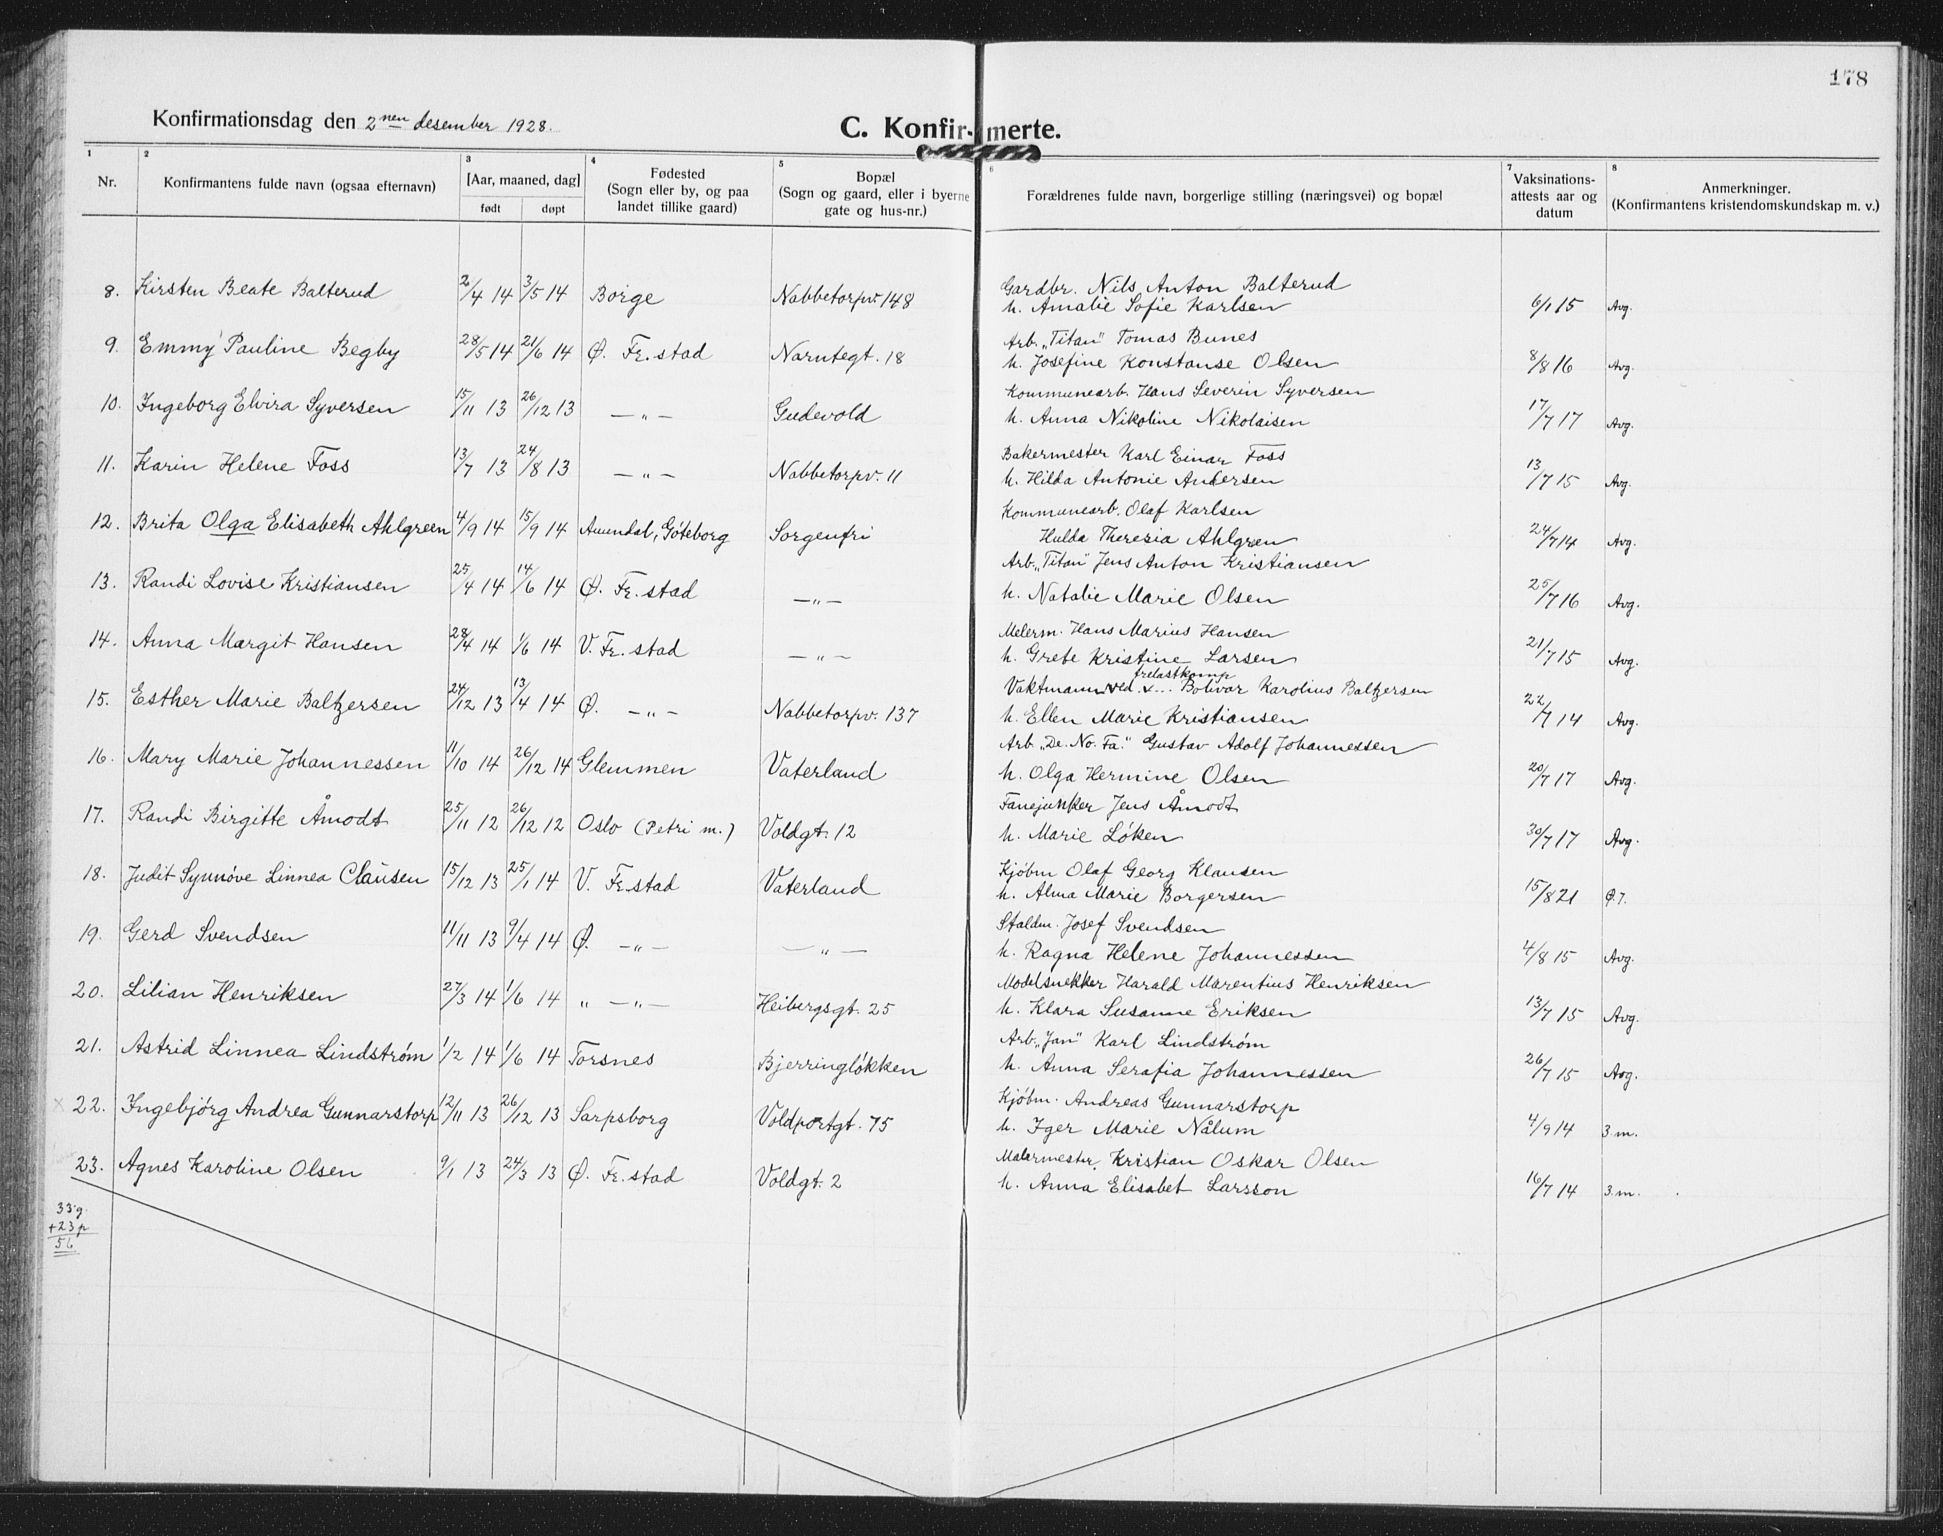 178
Konfirmationsdag den 2nen desember 1928.
C. Konfirmerte.
1 2 3 4 5 6 7 8
Nr. Konfirmantens fulde navn (ogsaa efternavn) [Aar, maaned, dag] født døpt Fødested (Sogn eller by, og paa landet tillike gaard) Bopæl (Sogn og gaard, eller i byerne gate og hus-nr.) Forældrenes fulde navn, borgerlige stilling (næringsvei) og bopæl Vaksinations-attests aar og datum Anmerkninger. (Konfirmantens kristendomskundskap m. v.)
8. Kirsten Beate Balterud 2/4 14 3/5 14 Borge Nabbetorpv. 148 Gardbr. Nils Anton Balterud
h. Amalie Sofie Karlsen 6/1 15 Avg.
9. Emmy Pauline Begby 28/5 14 21/6 14 Ø. Fr.stad Narntegt. 18 Arb. „Titan" Tomas Bunes
h. Josefine Konstanse Olsen 8/8 16 Avg.
10. Ingeborg Elvira Syversen 15/11 13 26/12 13 — „ — Gudevold Kommunearb. Hans Severin Syversen
h. Anna Nikoline Nikolaisen 17/7 17 Avg.
11. Karin Helene Foss 13/7 13 24/8 13 — „ — Nabbetorpv. 11 Bakermester Karl Einar Foss
h. Hilda Antonie Andersen 13/7 15 Avg.
12. Brita Olga Elisabeth Ahlgreen 4/9 14 15/9 14 Amundal, Göteborg Sorgenfri Kommunearb. Olaf Karlsen
Hulda Therezia Ahlgren 24/7 14 Avg.
13. Randi Lovise Kristiansen 25/4 14 14/6 14 Ø. Fr.stad — „ — Arb. „Titan" Jens Anton Kristiansen
h. Natalie Marie Olsen 25/7 16 Avg.
14. Anna Margit Hansen 28/4 14 1/6 14 V. Fr.stad — „ — Melerm. Hans Marius Hansen
h. Grete Kristine Larsen 21/7 15 Avg.
15. Esther Marie Baltzersen 24/12 13 13/4 14 Ø. — „ — Nabbetorpv. 137 Vaktmann ved trelastkomp Bolivar Karolius Baltzersen
h. Ellen Marie Kristiansen 22/7 14 Avg.
16. Mary Marie Johannessen 11/10 14 26/12 14 Glemmen Vaterland Arb. „De. No. Fa." Gustav Adolf Johannessen
h. Olga Hermine Olsen 20/7 17 Avg.
17. Randi Birgitte Åmodt 25/11 12 26/12 12 Oslo (Petri m.) Voldgt. 12 Fanejunker Jens Åmodt
h. Marie Løken 30/7 17 Avg.
18. Judit Synnöve Linnea Clausen 15/12 13 25/1 14 V. Fr.stad Vaterland Kjøbm Olaf Georg Klausen
h. Alma Marie Borgersen 15/8 21 Ø. 7.
19. Gerd Svendsen 11/11 13 9/4 14 Ø. — „ — — „ — Staldm. Josef Svendsen
h. Ragna Helene Johannessen 4/8 15 Avg.
20. Lilian Henriksen 27/3 14 1/6 14 „ — „ — Heibergsgt. 25 Modelsnekker Harald Marentius Henriksen
h. Klara Susanne Eriksen 13/7 15 Avg.
21. Astrid Linnea Lindstrøm 1/2 14 1/6 14 Torsnes Bjerringløkken Arb. „Jan" Karl Lindstrøm
h. Anna Serafia Johannessen 26/7 15 Avg.
x 22. Ingebjörg Andrea Gunnarstorp 12/11 13 26/12 13 Sarpsborg Voldportgt. 75 Kjöbm. Andreas Gunnarstorp
h. Iger Marie Nålum 4/9 14 3 m.
23. Agnes Karoline Olsen 9/1 13 24/3 13 Ø. Fr.stad Voldgt. 2 Malermester Kristian Oskar Olsen
h. Anna Elisabet Larsson 16/7 14 3. m.
33 g
+23 p
56